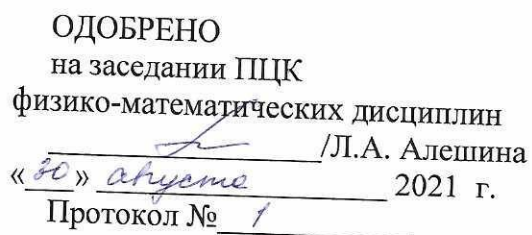 ОДОБРЕНО
на заседании ПЦК
физико-математических дисциплин
/Л.А. Алешина
«30» августа 2021 г.
Протокол № 1